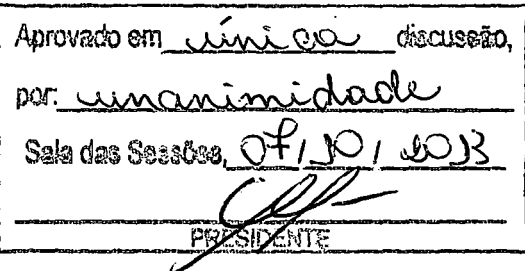 Aprovado em única discussão,
por: unanimidade
Sala das Sessões, 07/10/2013
PRESIDENTE